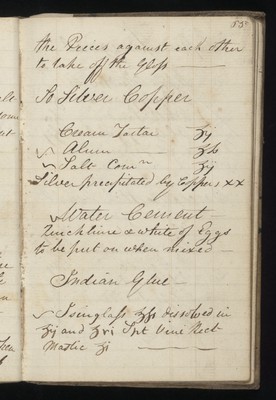 the Pieces against each other
to take off the Gloss
To Silver Copper
Cream Tartar ʒij
Alum ʒß
Salt Comⁿ ʒij
Silver precipitated by Copper xx
Water Cement
Quicklime & white of Eggs
to be put on when mixed
Indian Glue
Isinglass ʒß dissolved in
ʒij and ʒvi Spt Vini Rect
Mastic ʒi